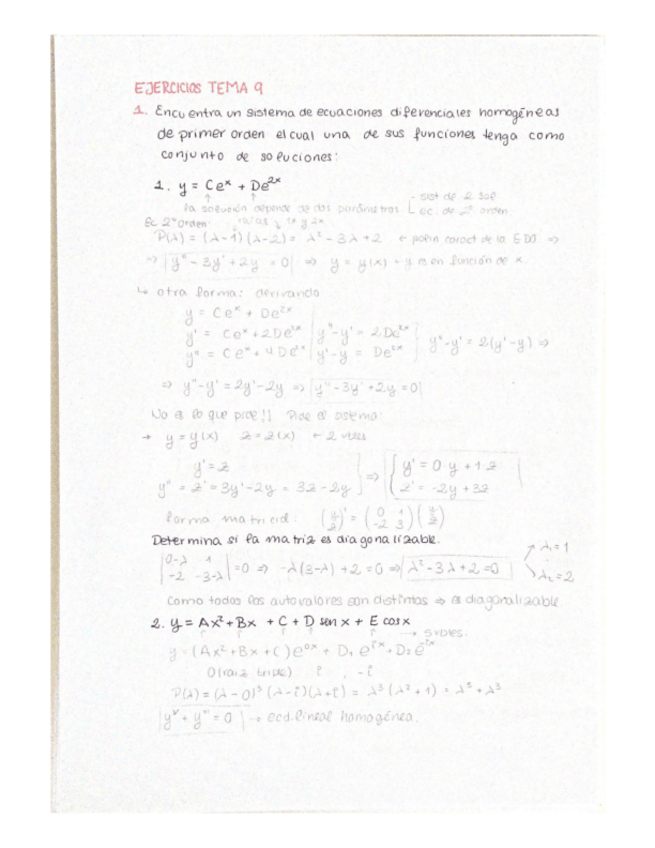 EJERCICIOS TEMA 9
1. Encuentra un sistema de ecuaciones diferenciales homogéneas
de primer orden el cual una de sus funciones tenga como
conjunto de soluciones:
1. y = Ceˣ + De²ˣ
la solución depende de dos parámetros sist de 2 sol
ec. de 2º orden
Ec 2º orden
P(λ) = (λ-1)(λ-2) = λ² - 3λ + 2 ← polin caract de la EDO ⇒
⇒ y'' - 3y' + 2y = 0 ⇒ y = y(x) → y es en función de x.
↳ otra forma: derivando
y = Ceˣ + De²ˣ
y' = Ceˣ + 2De²ˣ y'' - y' = 2De²ˣ
y'' = Ceˣ + 4De²ˣ y' - y = De²ˣ } y'' - y' = 2(y' - y) ⇒
⇒ y'' - y' = 2y' - 2y ⇒ y'' - 3y' + 2y = 0
No es lo que pide!! Pide el sistema:
→ y = y(x) z = z(x) ← 2 vbles
y' = z
y'' = z' = 3y' - 2y = 3z - 2y ⇒ { y' = 0 y + 1 z
z' = -2y + 3z
forma matricial: (y z)' = (0 1 -2 3) (y z)
Determina si la matriz es diagonalizable.
|0-λ 1 -2 -3-λ| = 0 ⇒ -λ(3-λ) + 2 = 0 ⇒ λ² - 3λ + 2 = 0 λ₁ = 1
λ₂ = 2
Como todos los autovalores son distintos ⇒ es diagonalizable
2. y = Ax² + Bx + C + D sen x + E cos x
→ 5 vbles.
y = (Ax² + Bx + C) e⁰ˣ + D₁ eⁱˣ + D₂ e⁻ⁱˣ
0 (raiz triple) i , -i
P(λ) = (λ - 0)³ (λ - i)(λ + i) = λ³ (λ² + 1) = λ⁵ + λ³
yᵛ + y''' = 0 → ecd. lineal homogénea.